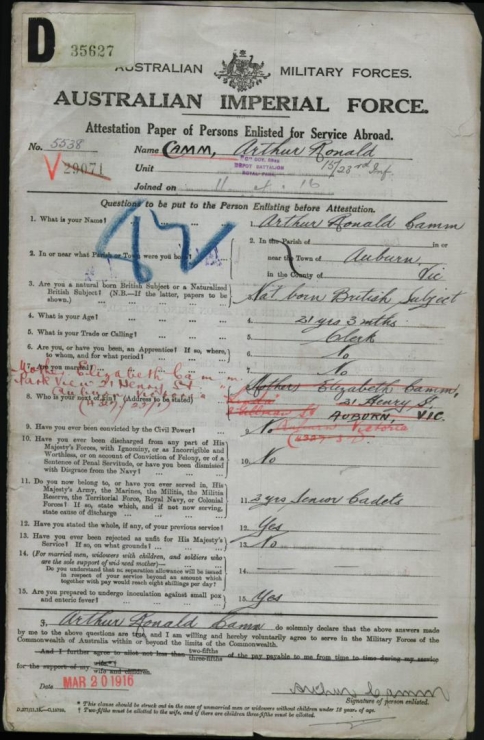 D 35627
AUSTRALIAN MILITARY FORCES.
AUSTRALIAN IMPERIAL FORCE.
Attestation Paper of Persons Enlisted for Service Abroad.
No. 5538 Name CAMM, Arthur Ronald
V 29071 Unit 15/23rd Inf.
DEPOT BATTALION
Joined on 11 . 4 . 16
Questions to be put to the Person Enlisting before Attestation.
42
1. What is your Name? ... ... ... 1. Arthur Ronald Camm
2. In or near what Parish or Town were you born? 2. In the Parish of in or
near the Town of Auburn,
in the County of Vic
3. Are you a natural born British Subject or a Naturalized British Subject? (N.B.—If the latter, papers to be shown.) Nat born British Subject
4. What is your Age? 4. 21 yrs 3 mths
5. What is your Trade or Calling? 5. Clerk
6. Are you, or have you been, an Apprentice? If so, where, to whom, and for what period? 6. No
7. Are you married? 7. No
Mother Elizabeth Camm
Park View 21 Henry St
8. Who is your next of kin? (Address to be stated) Mother Elizabeth Camm,
21 Henry St
AUBURN, VIC.
Auburn Victoria
9. Have you ever been convicted by the Civil Power? 9. No
10. Have you ever been discharged from any part of His Majesty's Forces, with Ignominy, or as Incorrigible and Worthless, or on account of Conviction of Felony, or of a Sentence of Penal Servitude, or have you been dismissed with Disgrace from the Navy? 10. No
11. Do you now belong to, or have you ever served in, His Majesty's Army, the Marines, the Militia, the Militia Reserve, the Territorial Force, Royal Navy, or Colonial Forces? If so, state which, and if not now serving, state cause of discharge 11. 3 yrs Senior Cadets
12. Have you stated the whole, if any, of your previous service? 12. Yes
13. Have you ever been rejected as unfit for His Majesty's Service? If so, on what grounds? 13. No
14. (For married men, widowers with children, and soldiers who are the sole support of widowed mother)—
Do you understand that no separation allowance will be issued in respect of your service beyond an amount which together with pay would reach eight shillings per day? 14.
15. Are you prepared to undergo inoculation against small pox and enteric fever? 15. Yes
I, Arthur Ronald Camm do solemnly declare that the above answers
made by me to the above questions are true, and I am willing and hereby voluntarily agree to serve in the Military Forces of the
Commonwealth of Australia within or beyond the limits of the Commonwealth.
And I further agree to allot not less than two-fifths three-fifths of the pay payable to me from time to time during my service
for the support of my wife wife and children.
Date MAR 20 1916 Arthur Camm
Signature of person enlisted.
* This clause should be struck out in the case of unmarried men or widowers without children under 18 years of age.
† Two-fifths must be allotted to the wife, and if there are children three-fifths must be allotted.